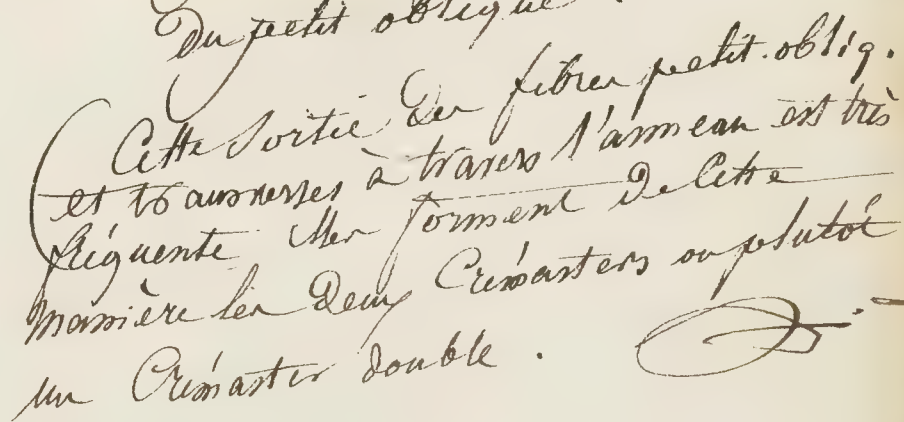 Du petit oblique
Cette sortie des fibres petit obliq.
et transverses à travers l'anneau est très
fréquente elles forment de cette
manière les deux Crémasters ou plutôt
un Crémaster double.